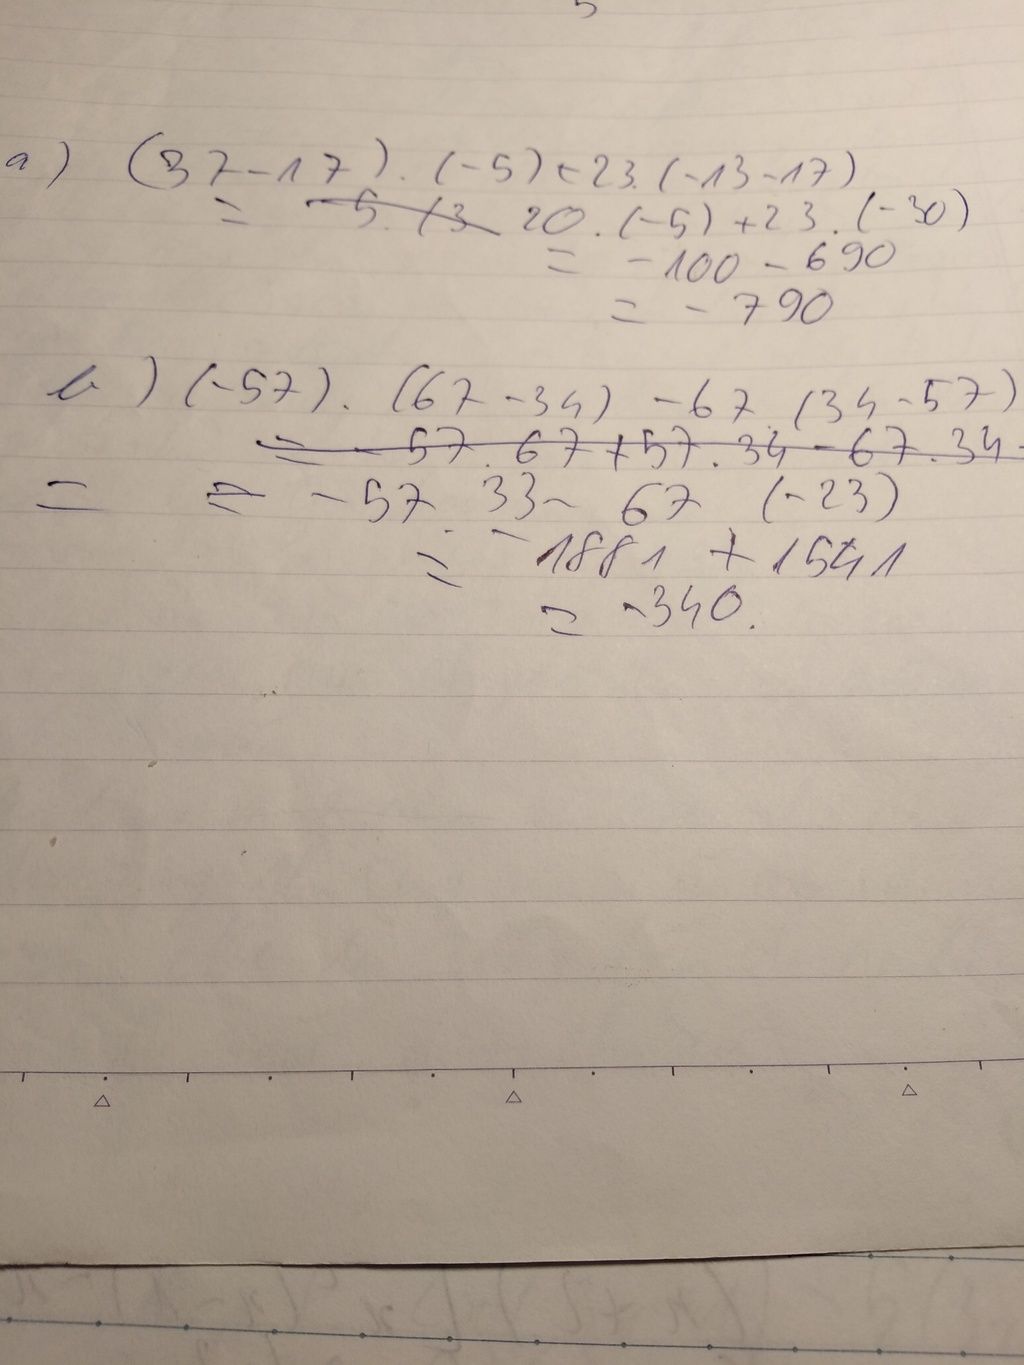 5
a) (37-17). (-5)+23.(-13-17)
= 20.(-5)+23.(-30)
= -100 - 690
= - 790
b) (-57). (67-34) -67.(34-57)
= -57.67+57.34-67.34-
= = -57.33- 67 (-23)
= -1881 + 1541
= -340.